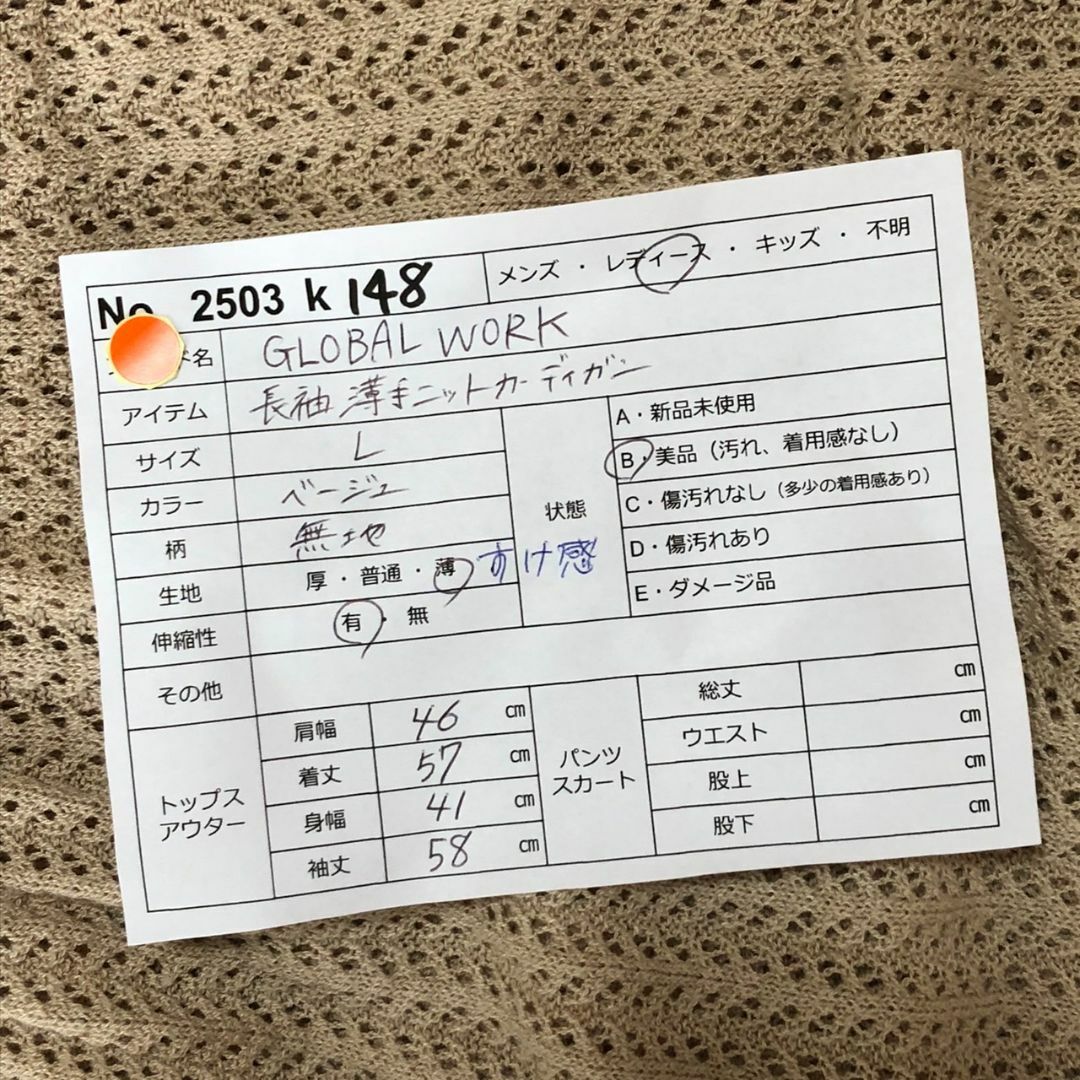 No 2503 k 148
メンズ ・ レディース ・ キッズ ・ 不明
ド名 GLOBAL WORK
アイテム 長袖 薄手ニットカーディガン
サイズ L
カラー ベージュ
柄 無地
生地 厚 ・ 普通 ・ 薄 すけ感
伸縮性 有 ・ 無
状態
A・新品未使用
B・美品（汚れ、着用感なし）
C・傷汚れなし（多少の着用感あり）
D・傷汚れあり
E・ダメージ品
その他
トップス
アウター
肩幅 46 ㎝
着丈 57 ㎝
身幅 41 ㎝
袖丈 58 ㎝
パンツ
スカート
総丈 ㎝
ウエスト ㎝
股上 ㎝
股下 ㎝